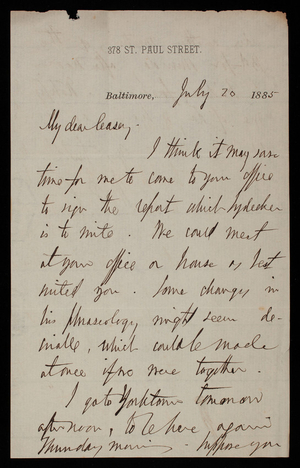 378 ST. PAUL STREET.
Baltimore, July 20 1885
My dear Casey.
I think it may save
time for me to come to your office
to sign the report which
is to write. We could meet
at your office or house as best
suited you. Some changes in
his phraseology might seem de-
sirable, which could be made
at once if we were together.
I go to Yorktown tomorrow
afternoon, to be here again
Thursday morning - Suppose you